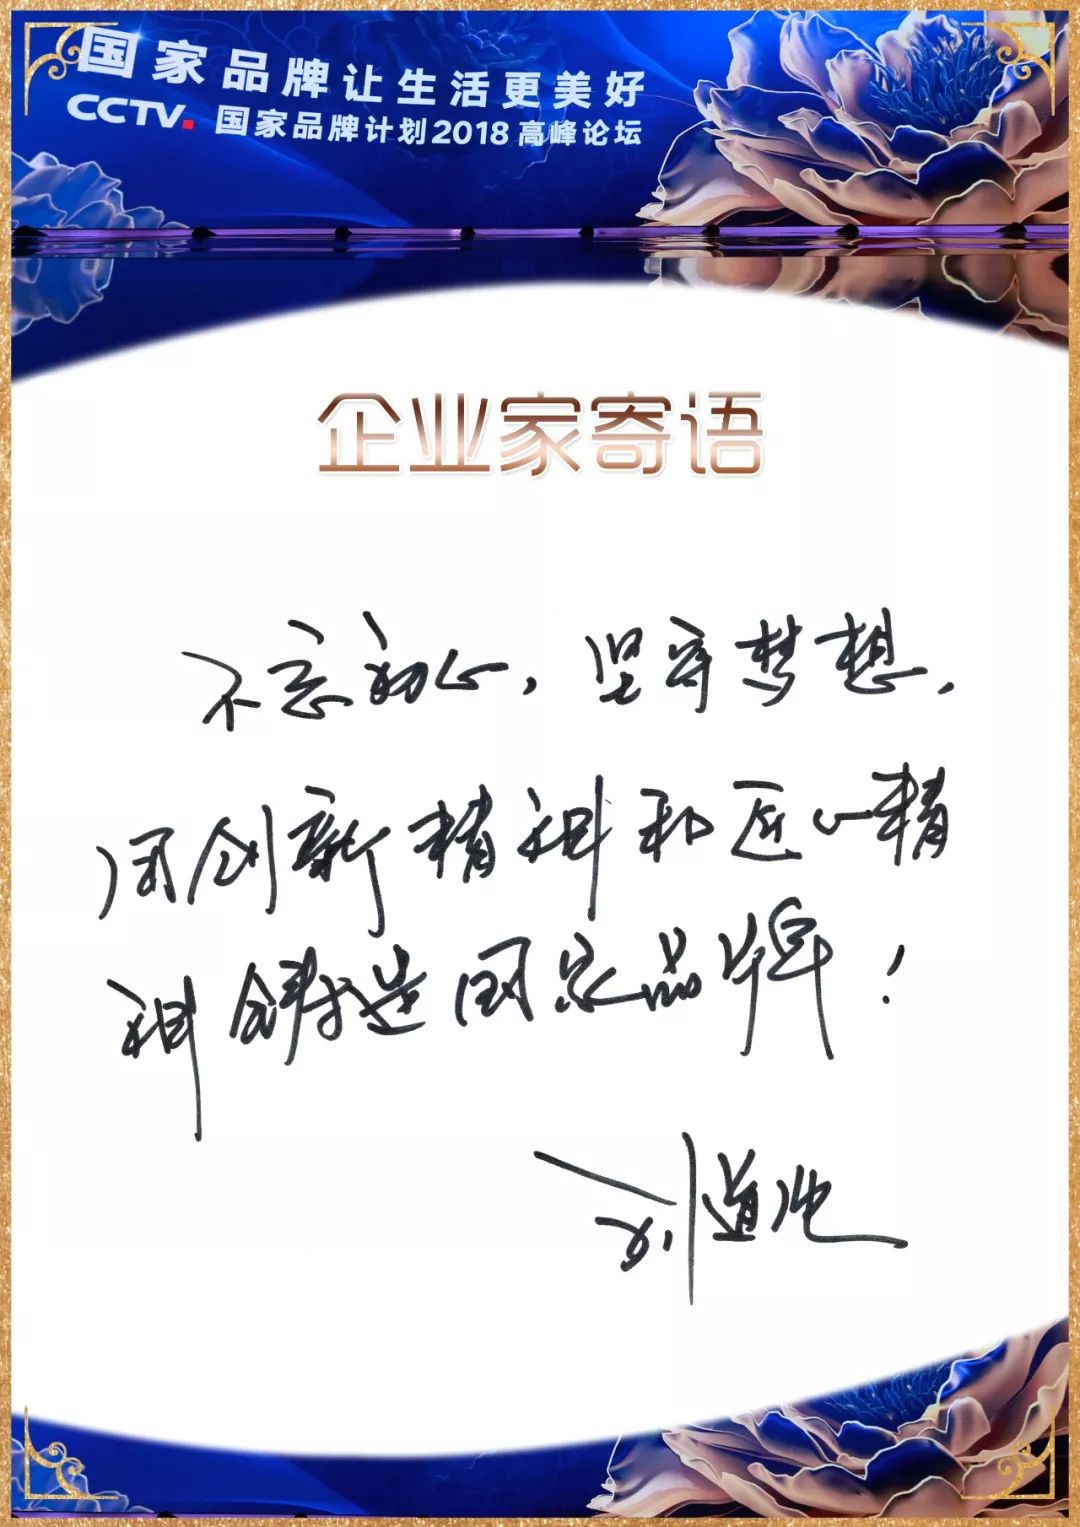 国家品牌让生活更美好
CCTV. 国家品牌计划2018高峰论坛
企业家寄语
不忘初心,坚守梦想,
用创新精神和匠心精
神铸造国家品牌!
刘道